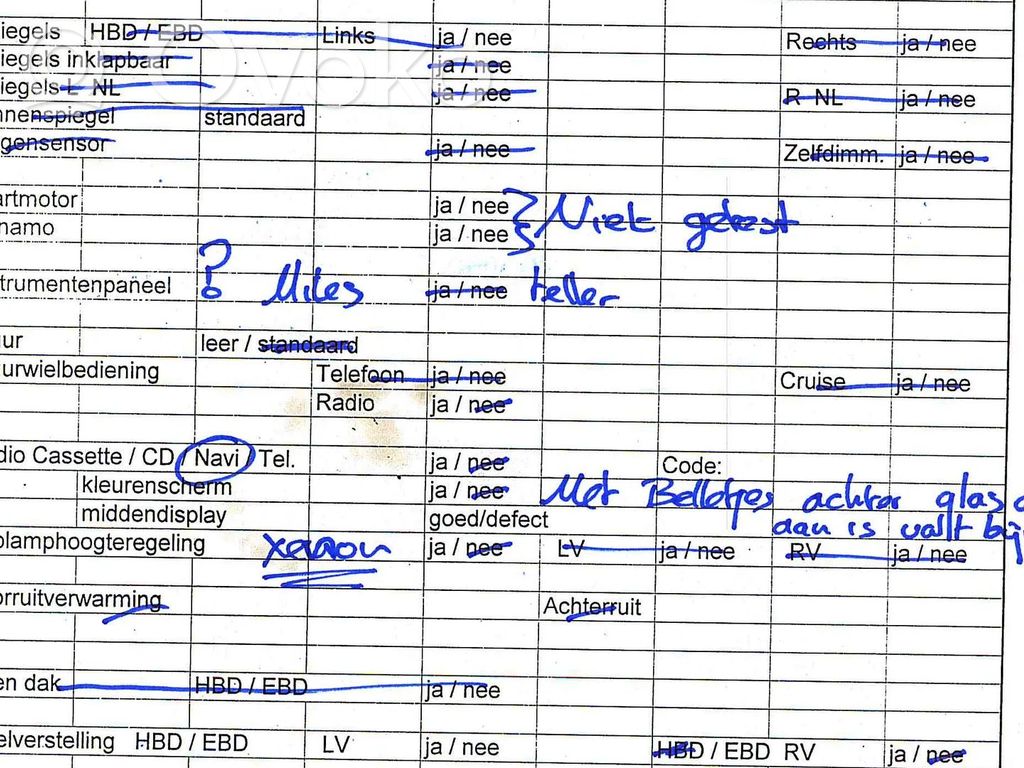 iegels HBD / EBD Links ja / nee Rechts ja / nee
iegels inklapbaar ja / nee
iegels L NL ja / nee R NL ja / nee
nnenspiegel standaard
gensensor ja / nee Zelfdimm. ja / nee
artmotor ja / nee
Niet getest
namo ja / nee
trumentenpaneel ? Miles ja / nee teller
ur leer / standaard
urwielbediening Telefoon ja / nee Cruise ja / nee
Radio ja / nee
dio Cassette / CD / Navi / Tel. ja / nee Code:
kleurenscherm ja / nee Met Belletjes achter glas
middendisplay goed/defect aan is valt bij
plamphoogteregeling xenon ja / nee LV ja / nee RV ja / nee
orruitverwarming Achterruit
en dak HBD / EBD ja / nee
elverstelling HBD / EBD LV ja / nee HBD / EBD RV ja / nee